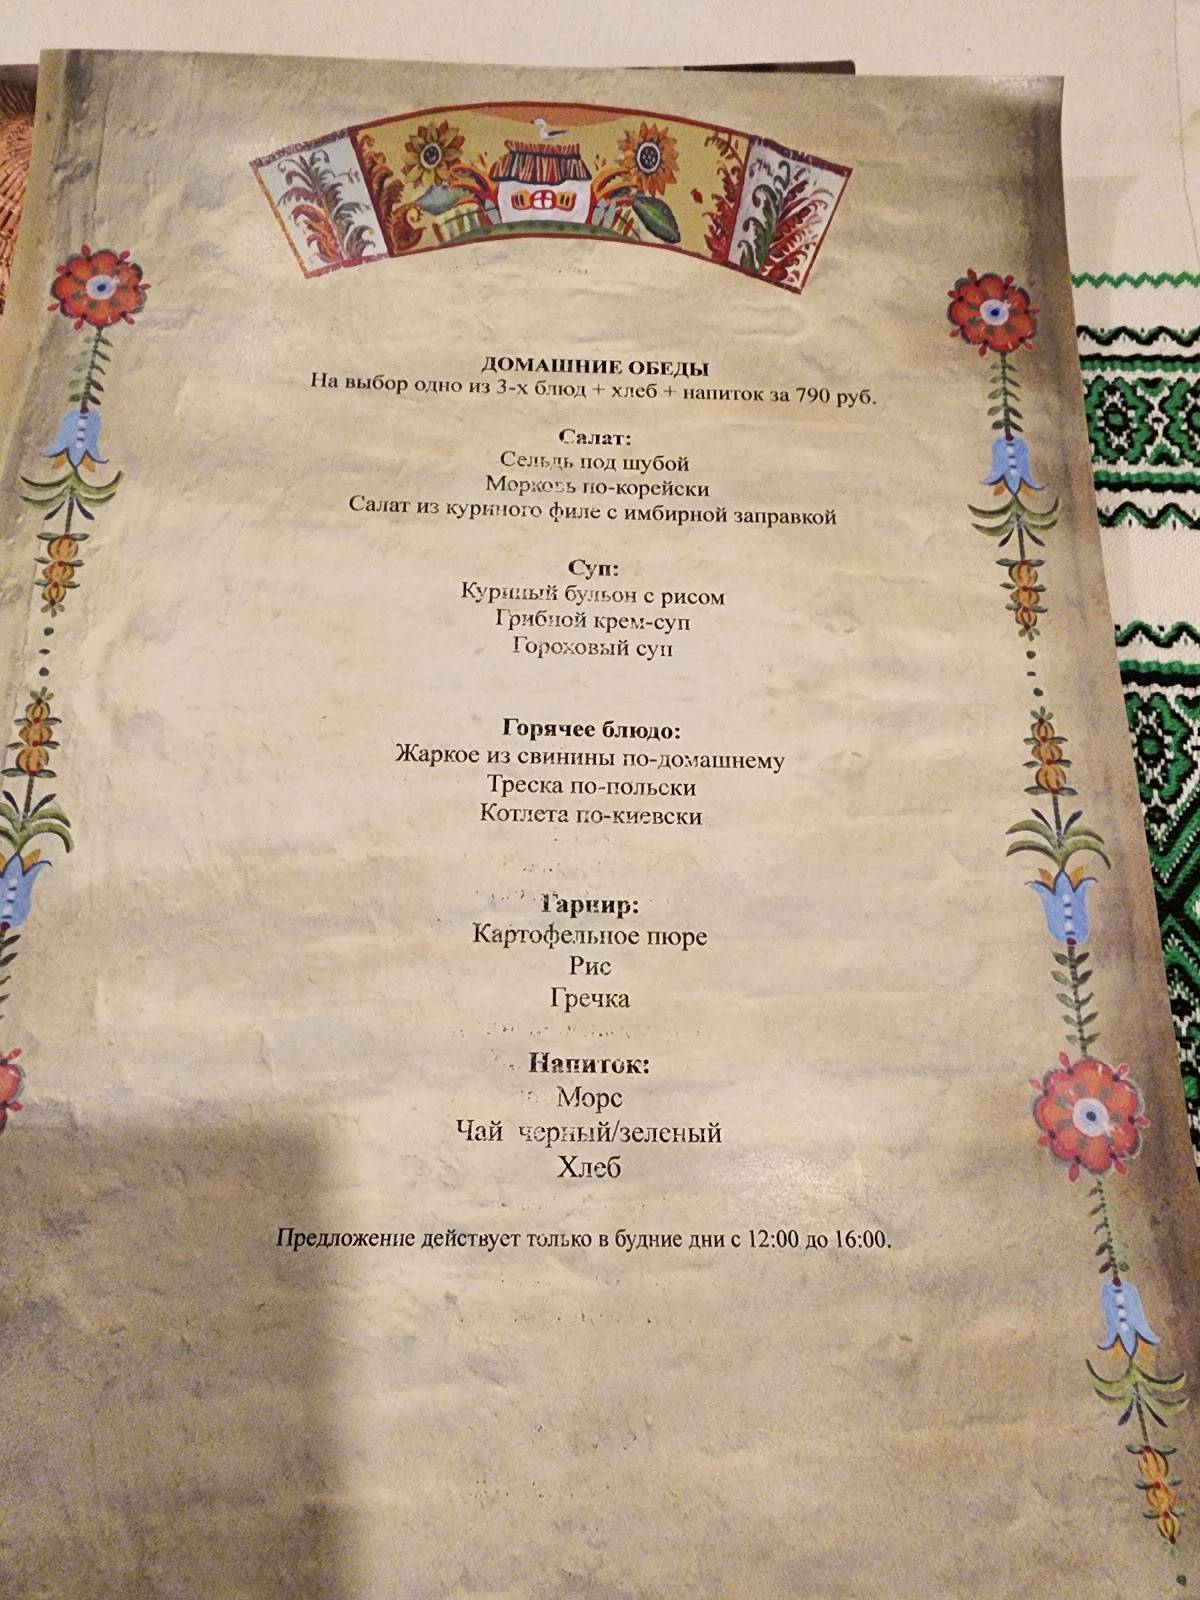 ДОМАШНИЕ ОБЕДЫ
На выбор одно из 3-х блюд + хлеб + напиток за 790 руб.
Салат:
Сельдь под шубой
Морковь по-корейски
Салат из куриного филе с имбирной заправкой
Суп:
Куриный бульон с рисом
Грибной крем-суп
Гороховый суп
Горячее блюдо:
Жаркое из свинины по-домашнему
Треска по-польски
Котлета по-киевски
Гарнир:
Картофельное пюре
Рис
Гречка
Напиток:
Морс
Чай черный/зеленый
Хлеб
Предложение действует только в будние дни с 12:00 до 16:00.